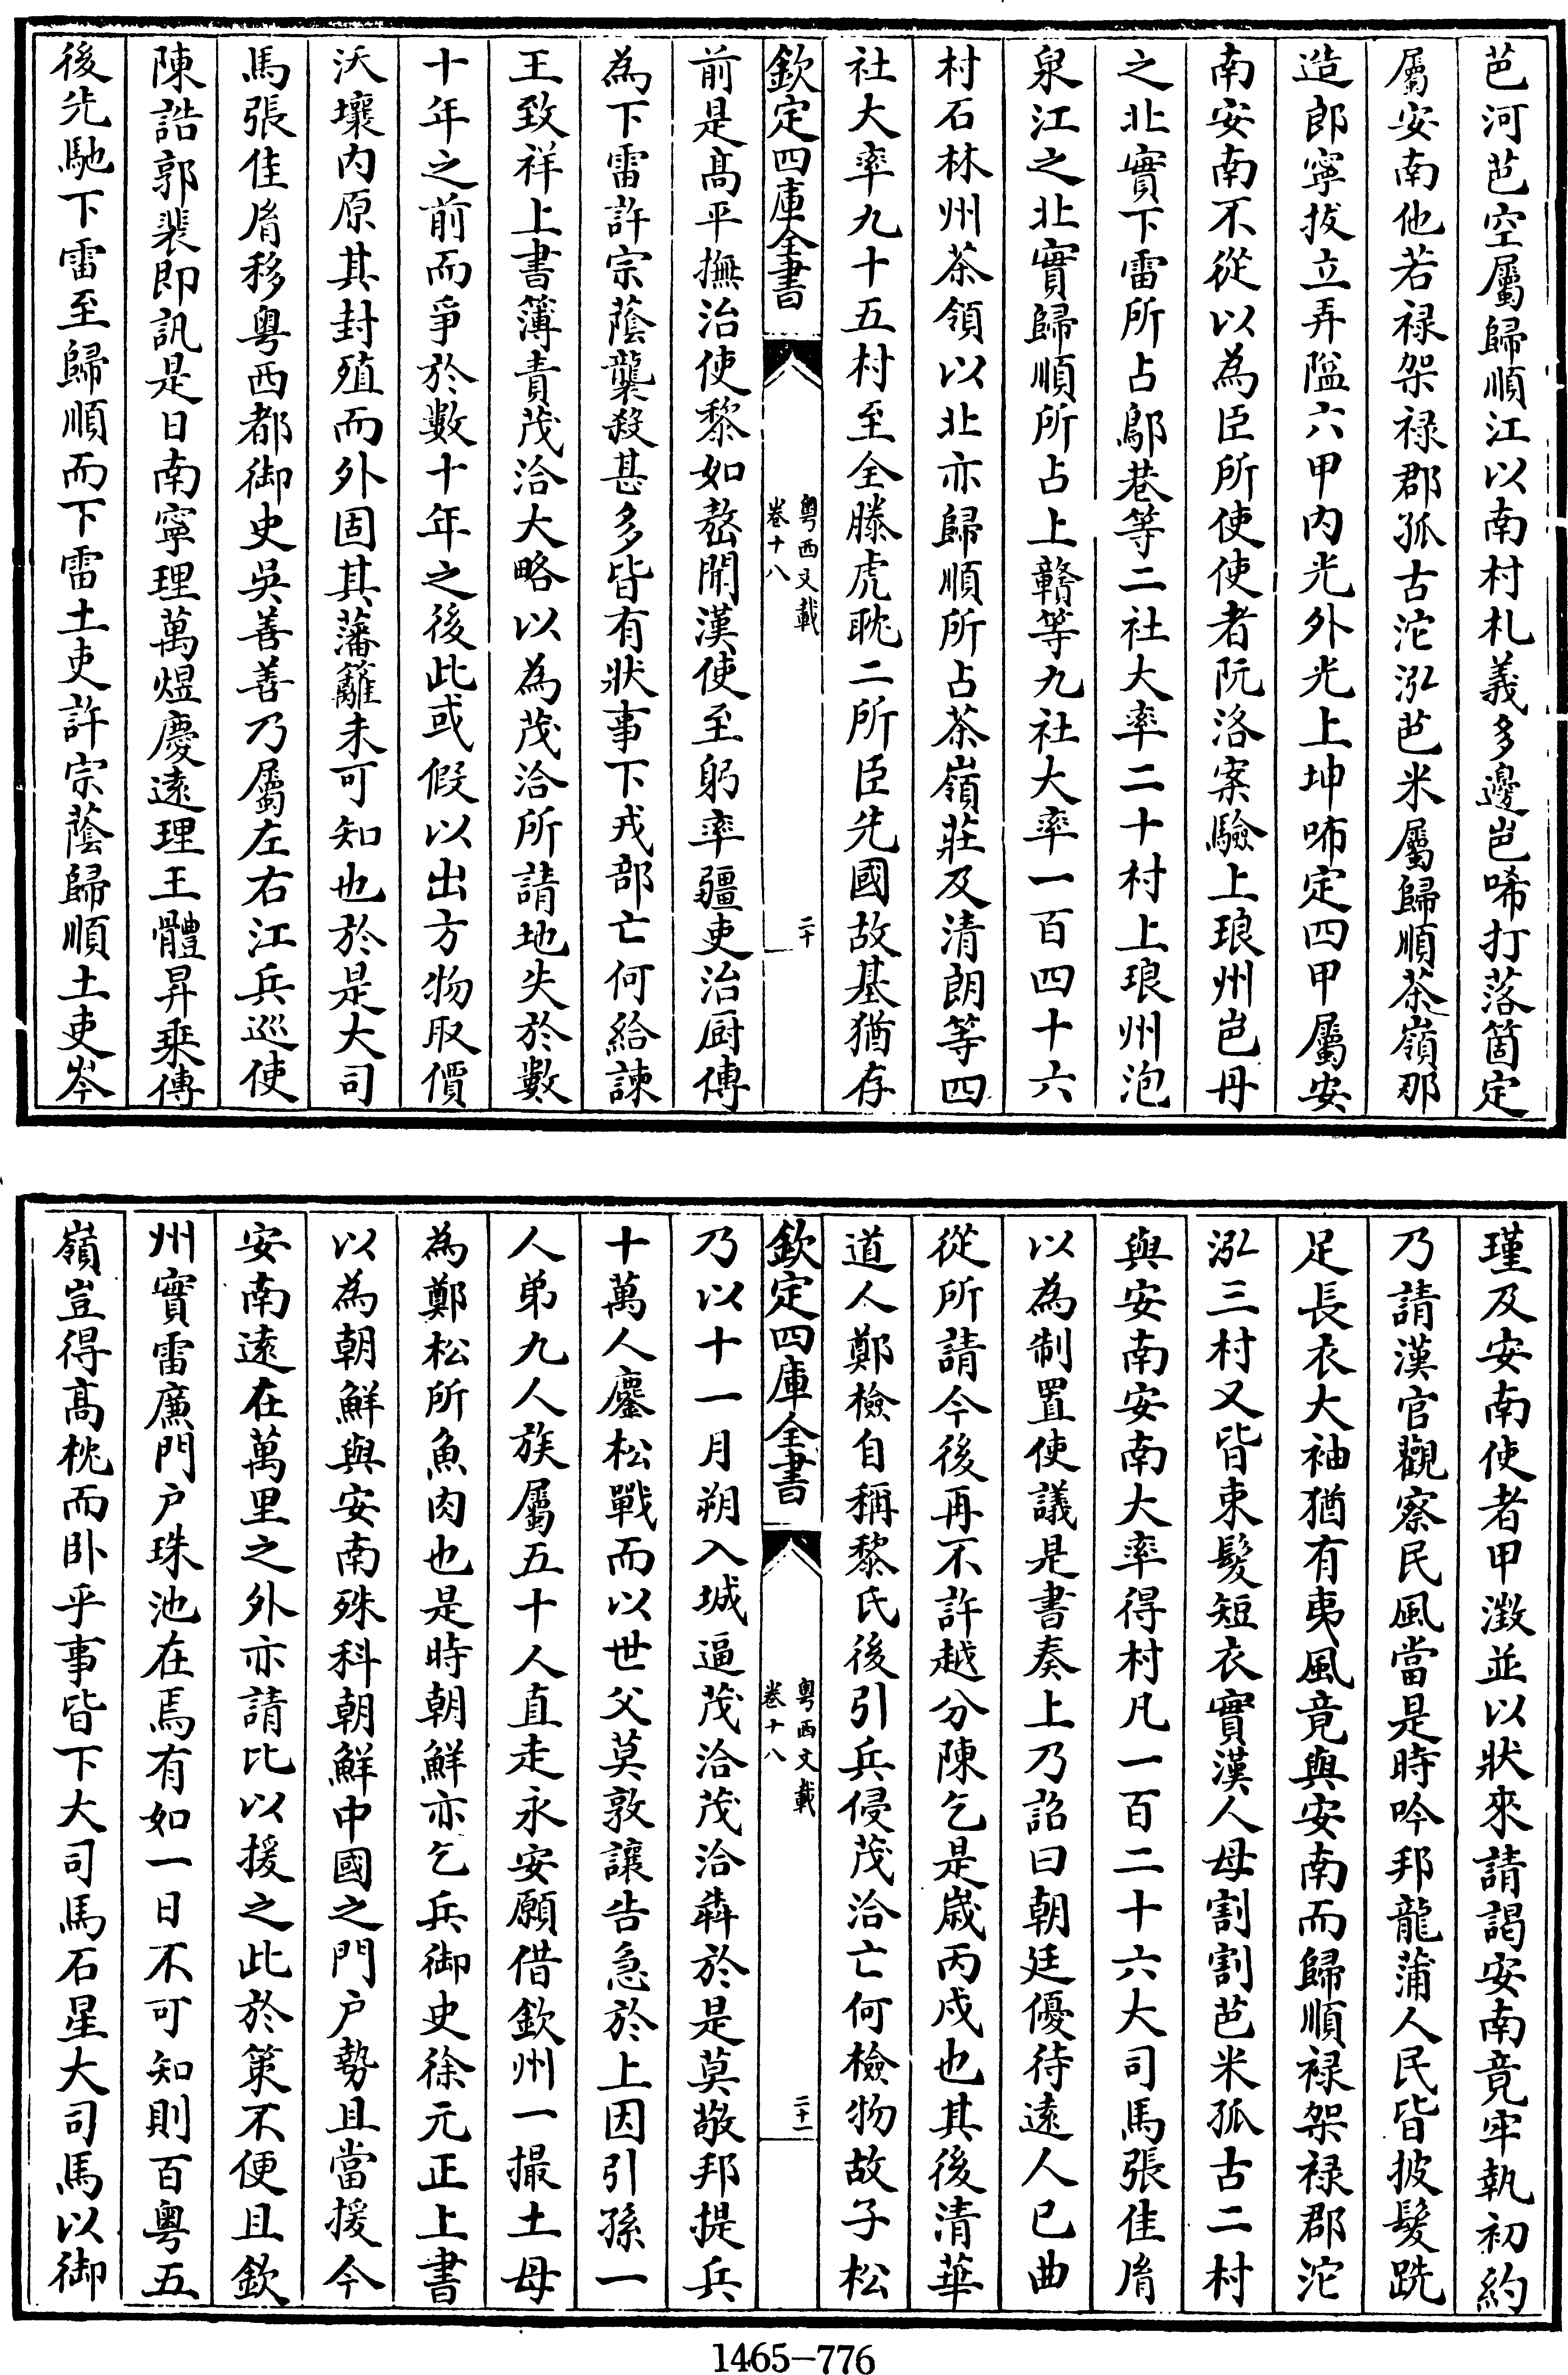 芭河芭空屬歸順江以南村札義多邊岜唏打落箇定
屬安南他若禄架禄郡孤古沱泓芭米屬歸順茶嶺那
造郎寧拔立弄隘六甲内光外光上坤咘定四甲屬安
南安南不從以為臣所使使者阮洛案驗上琅州岜丹
之北實下雷所占鄔巷等二社大率二十村上琅州泡
泉江之北實歸順所占上贛等九社大率一百四十六
村石林州茶領以北亦歸順所占茶嶺莊及清朗等四
社大率九十五村至全滕虎眈二所臣先國故基猶存
欽定四庫全書
粤西文載
卷十八
二十
前是髙平撫治使黎如嶅聞漢使至躬率疆吏治厨傳
為下雷許宗蔭襲殺甚多皆有狀事下戎部亡何給諫
王致祥上書簿責茂洽大略以為茂洽所請地失於數
十年之前而爭於數十年之後此或假以出方物取價
沃壤内原其封殖而外固其藩籬未可知也於是大司
馬張佳胤移粤西都御史吳善善乃屬左右江兵巡使
陳誥郭裴即訊是日南寧理萬煜慶遠理王體昇乘傳
後先馳下雷至歸順而下下雷土吏許宗蔭歸順土吏岑
瑾及安南使者甲澂並以狀來請謁安南竟牢執初約
乃請漢官觀察民風當是時吟邦龍蒲人民皆披髮跣
足長衣大袖猶有夷風竟與安南而歸順禄架禄郡沱
泓三村又皆束髮短衣實漢人毋割割芭米孤古二村
與安南安南大率得村凡一百二十六大司馬張佳胤
以為制置使議是書奏上乃詔曰朝廷優待遠人已曲
從所請今後再不許越分陳乞是歲丙戍也其後清華
道人鄭檢自稱黎氏後引兵侵茂洽亡何檢物故子松
欽定四庫全書
粤西文載
卷十八
二十一
乃以十一月朔入城逼茂洽茂洽犇於是莫敬邦提兵
十萬人鏖松戰而以世父莫敦讓告急於上因引孫一
人弟九人族屬五十人直走永安願借欽州一撮土毋
為鄭松所魚肉也是時朝鮮亦乞兵御史徐元正上書
以為朝鮮與安南殊科朝鮮中國之門户勢且當援今
安南遠在萬里之外亦請比以援之此於策不便且欽
州實雷亷門户珠池在焉有如一日不可知則百粤五
嶺豈得髙枕而卧乎事皆下大司馬石星大司馬以御
1465-776